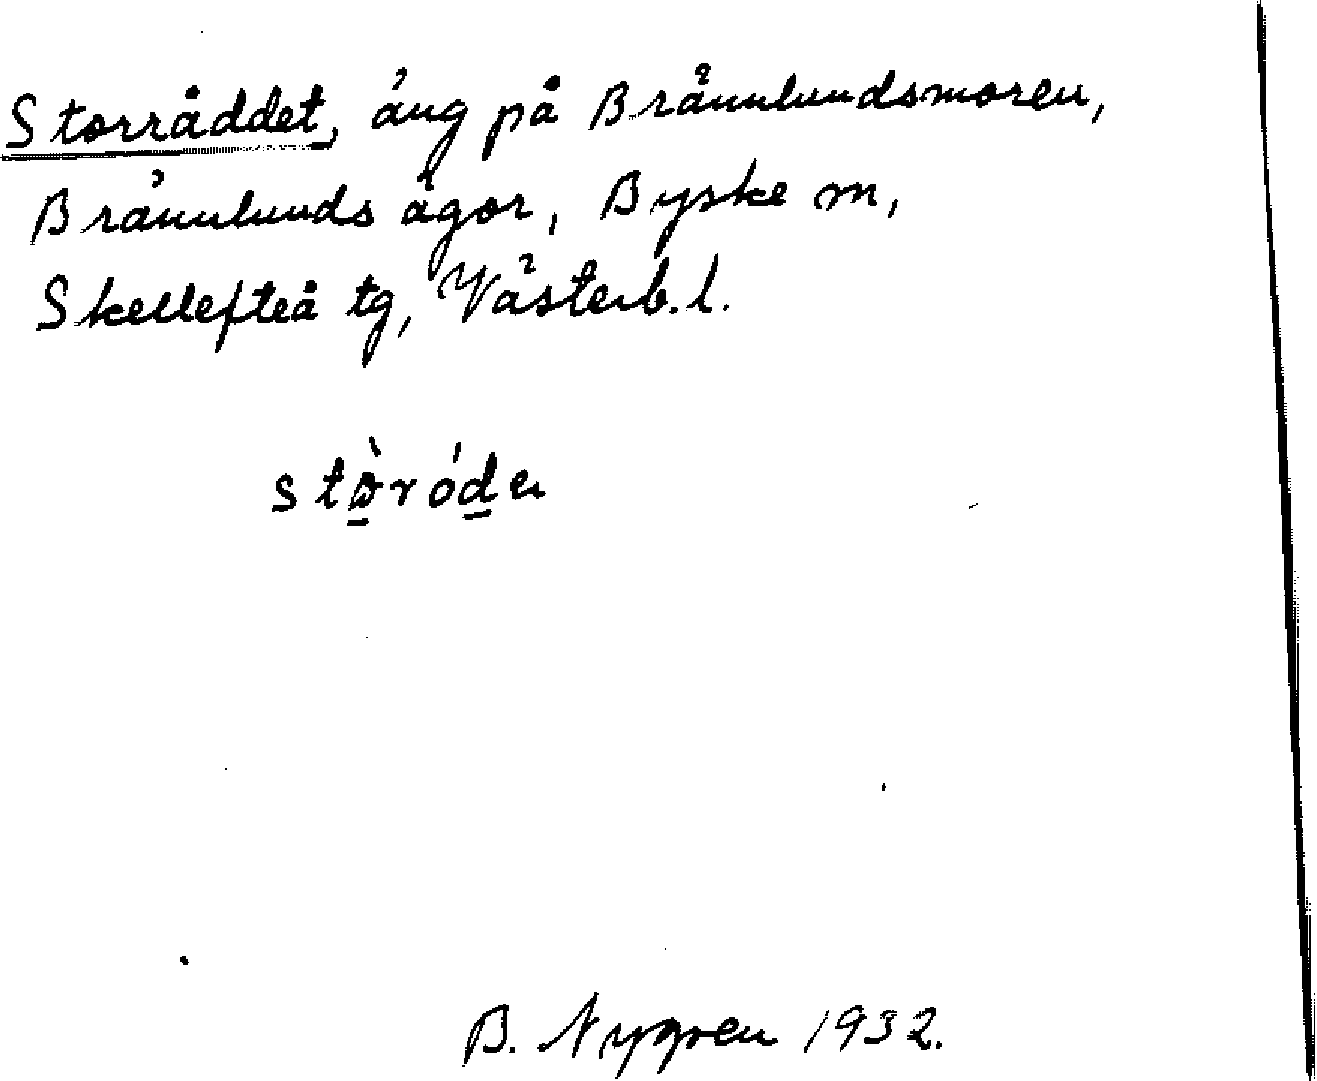 Storråddet, äng på Brännlundsmoren,
Brännlunds ägor, Byske sn,
Skellefteå tg, Västerb. l.
stòróde
B. Nygren 1932.